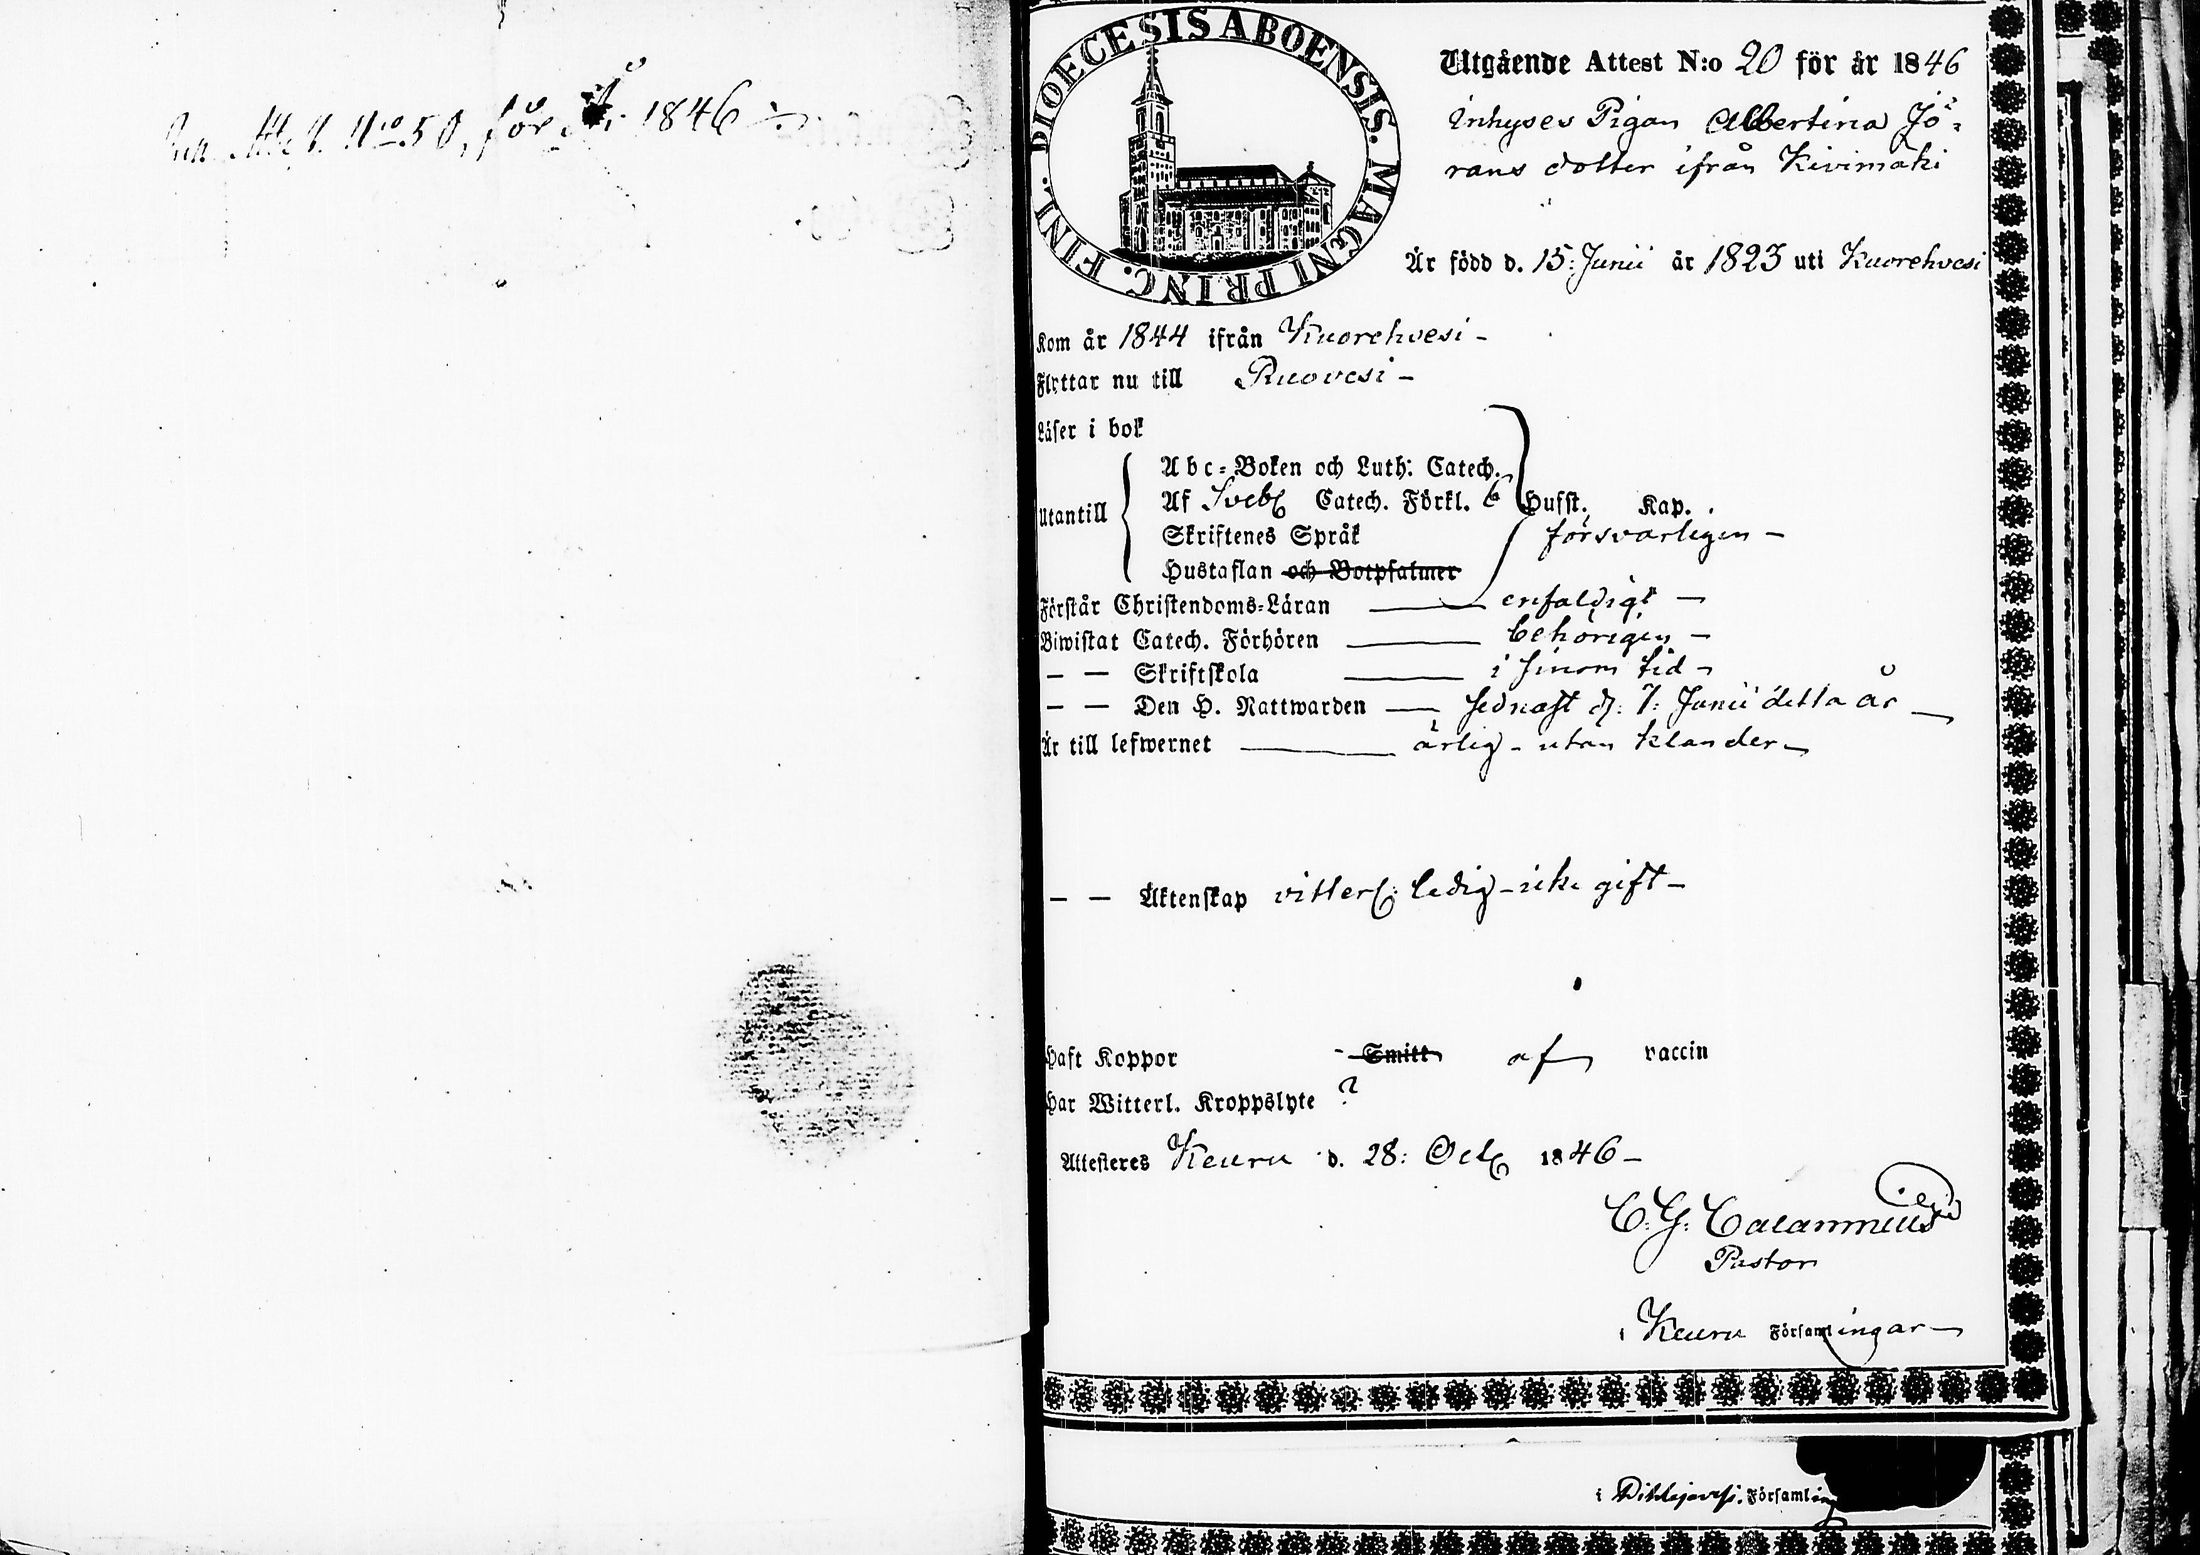 Ink. Attest. No 50, för År 1846
DIOECESIS ABOENSIS. MAGNI PRINC. FINL.
Utgående Attest N:o 20 för år 1846
inhyses Pigan Albertina Jö=
rans dotter ifrån Kivimäki
Är född d. 15: Junii år 1823 uti Kuorehvesi
Kom år 1844 ifrån Kuorehvesi -
Flyttar nu till Ruovesi -
Läser i bok
Abc-Boken och Luth: Catech.
Utantill Af Sveb. Catech. Förkl. 6 Hufst. Kap.
Skriftenes Språk försvarligen -
Hustaflan och Botpsalmer
Förstår Christendoms-Läran enfaldigt -
Biwistat Catech. Förhören behörigen -
— — Skriftskola i sinom tid -
— — Den H. Nattwarden sednast d: 7: Junii detta år
Är till lefwernet ärlig - utan klander -
— — Äktenskap vitterl: ledig - icke gift -
Haft Koppor - Smitt af vaccin
Har Witterl. Kroppslyte ?
Attesteras Keuru d. 28: Oct. 1846 -
C. G. Calamnius
Pastor
i Keuru Församlingar
i Församling